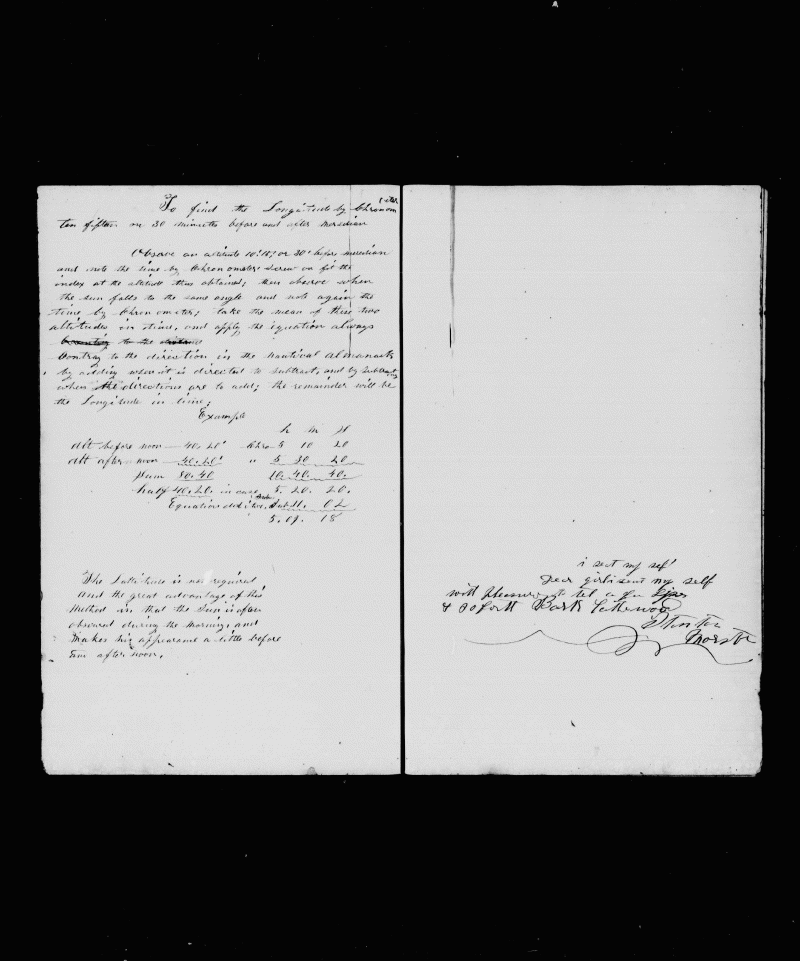 To find the Longitude by Chronom
eter
ten fifteen or 30 minutes before and after meredian
Observe an altitude 10' 15' or 30' before meredian
and note the time by Chronometer Screw on fit the
index at the altitude thus obtained; then observe when
the sun falls to the same angle and note again the
time by Chronometer; take the mean of these two
altitudes in time, and apply the equation always
Contray to the direction in the nautical almanack
by adding when it is directed to subtract, and by Subtracting
when the directions are to add; the remainder will be
the Longitude in time;
Example
h m s
Alt before noon 40. 20' Chro 5 10 20
Alt after noon 40. 20' " 5 30 20
Sum 80. 40 10. 40. 40.
half 40. 20. in case 5. 20. 20.
Equation Subt 11. 02
5. 09. 18
The Latitude is not required
and the great advantage of this
Method is that the Sun is often
obscured during the Morning, and
Makes his appearance a little before
or after noon.
i sent my self
Dear girl i sent my self
with pleasure to tel a few
Bark